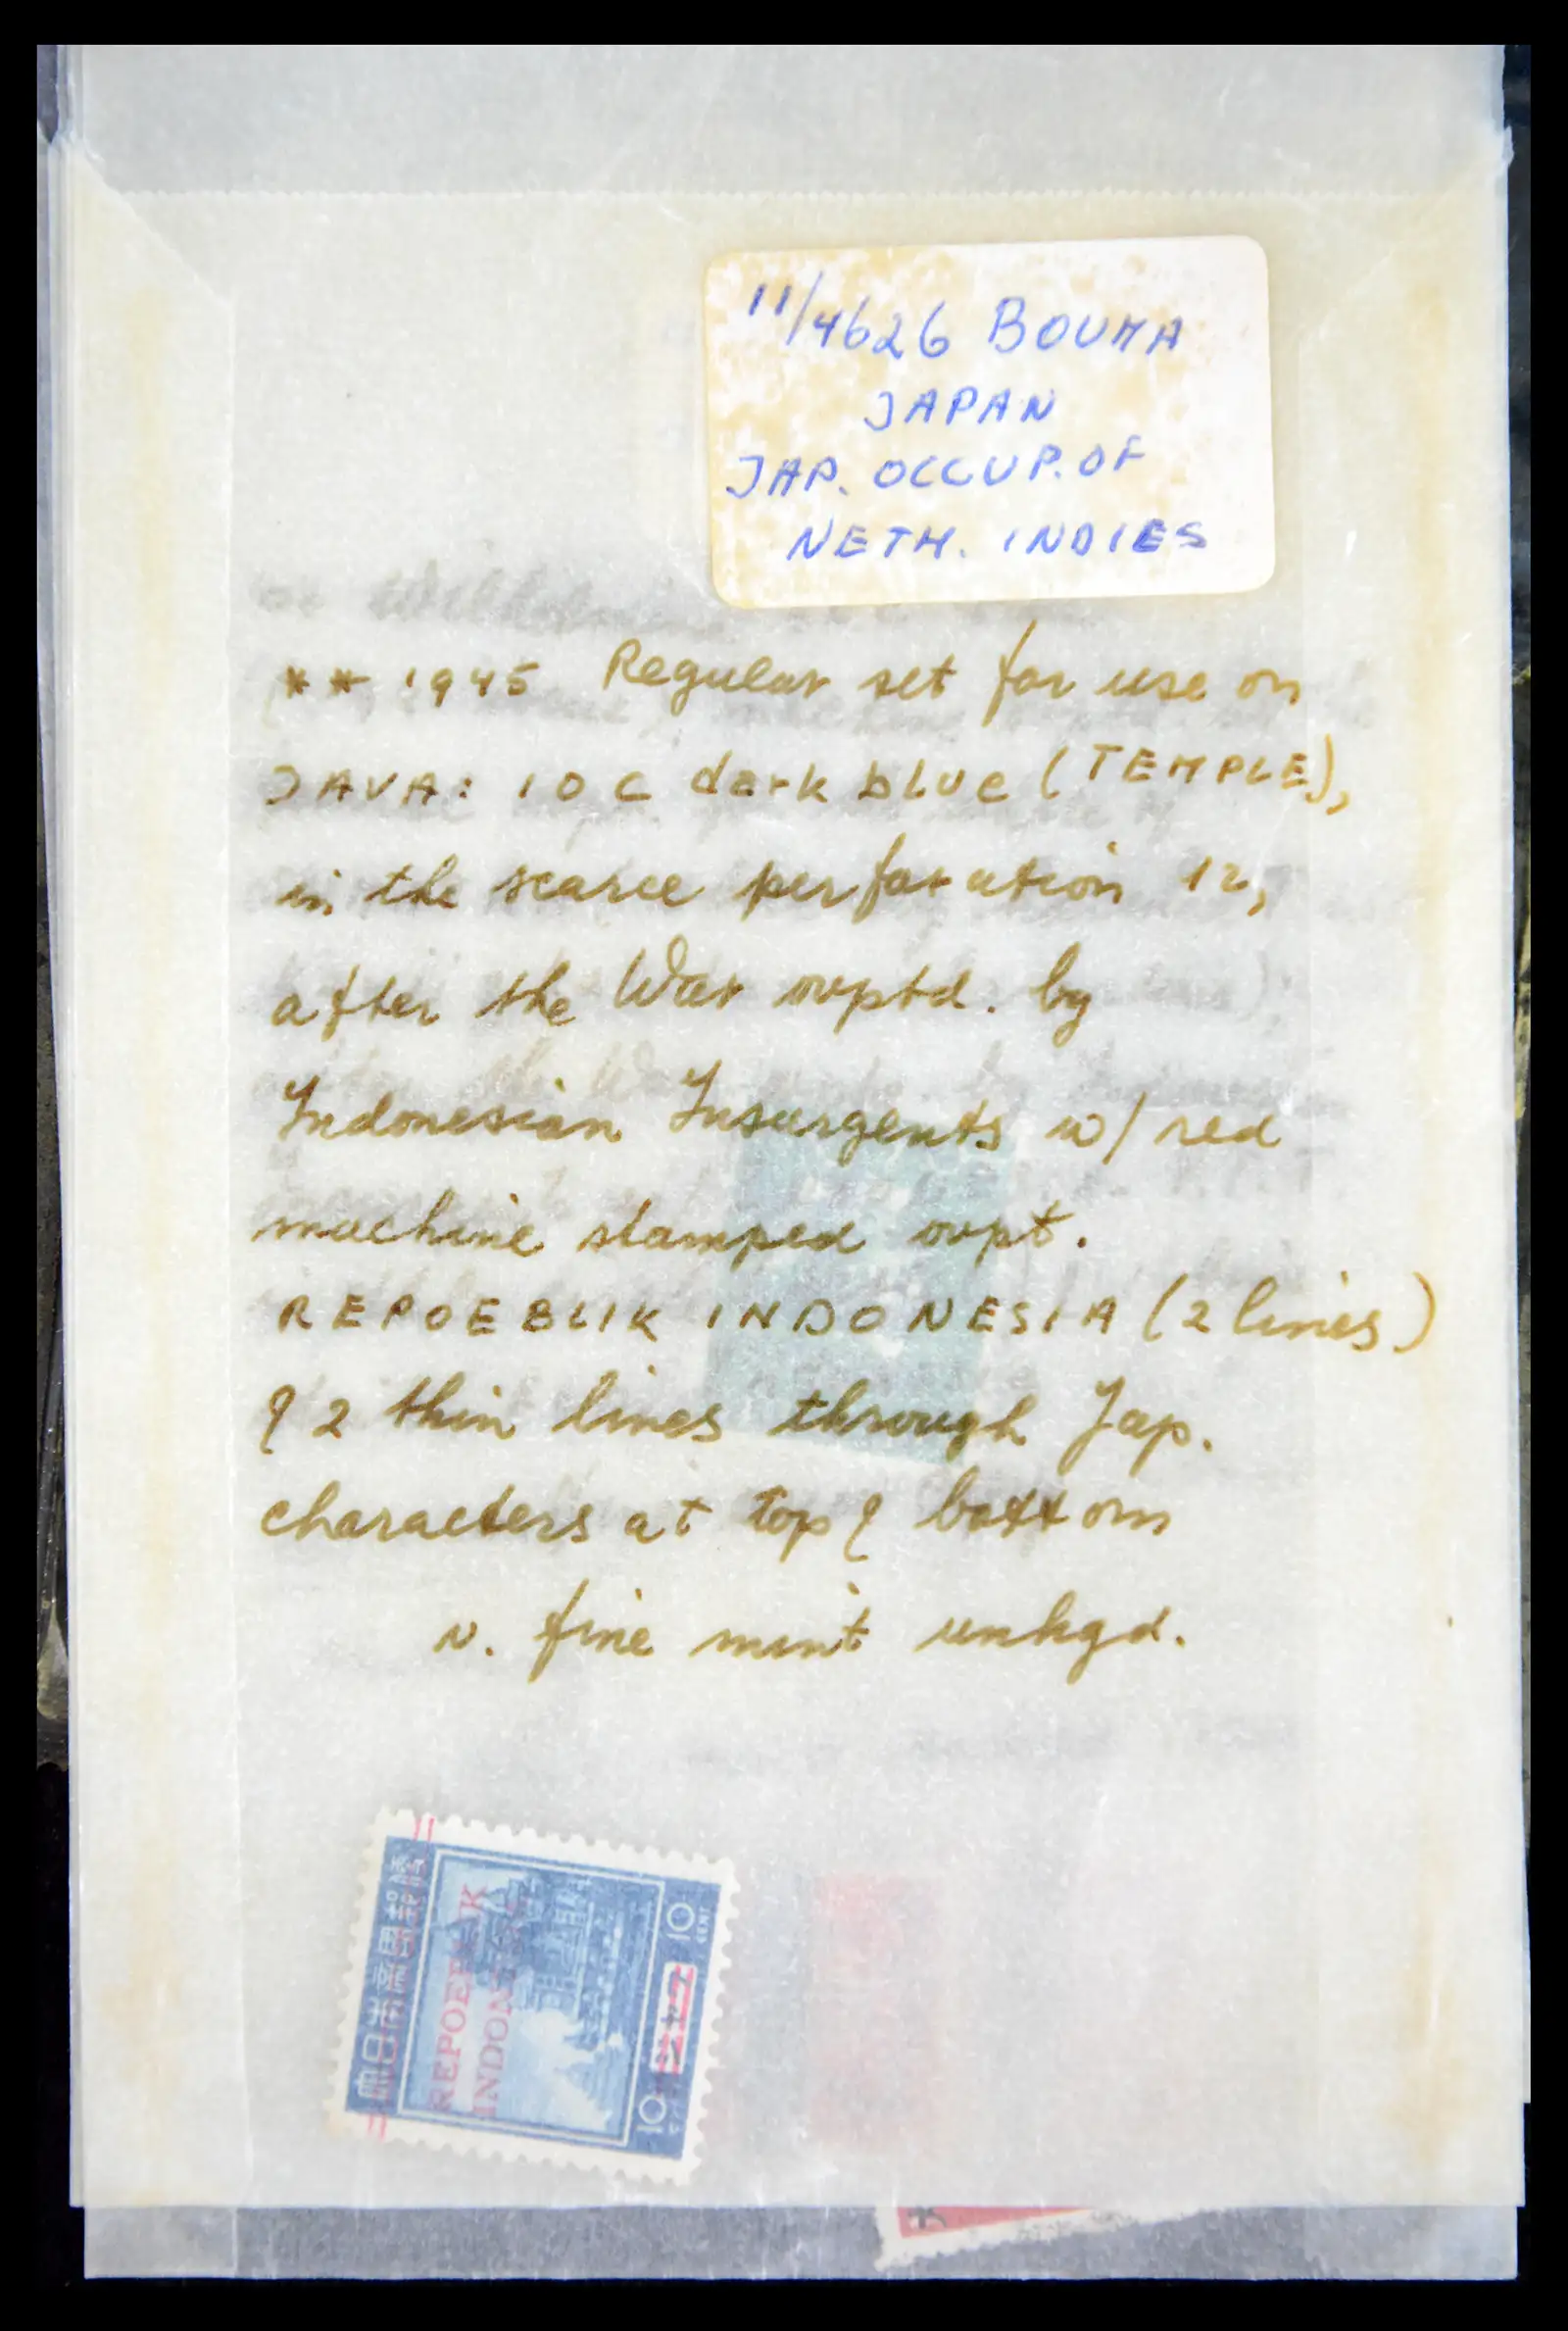 11/4626 BOUMA
JAPAN
JAP. OCCUP. OF
NETH. INDIES
** 1945 Regular set for use on
JAVA: 10 C dark blue (TEMPLE),
in the scarce perforation 12,
after the War ovptd. by
Indonesian Insurgents w/ red
machine stamped ovpt.
REPOEBLIK INDONESIA (2 lines)
& 2 thin lines through Jap.
characters at top & bottom
v. fine mint unhgd.
REPOEBLIK
INDONESIA
10 CENT
10